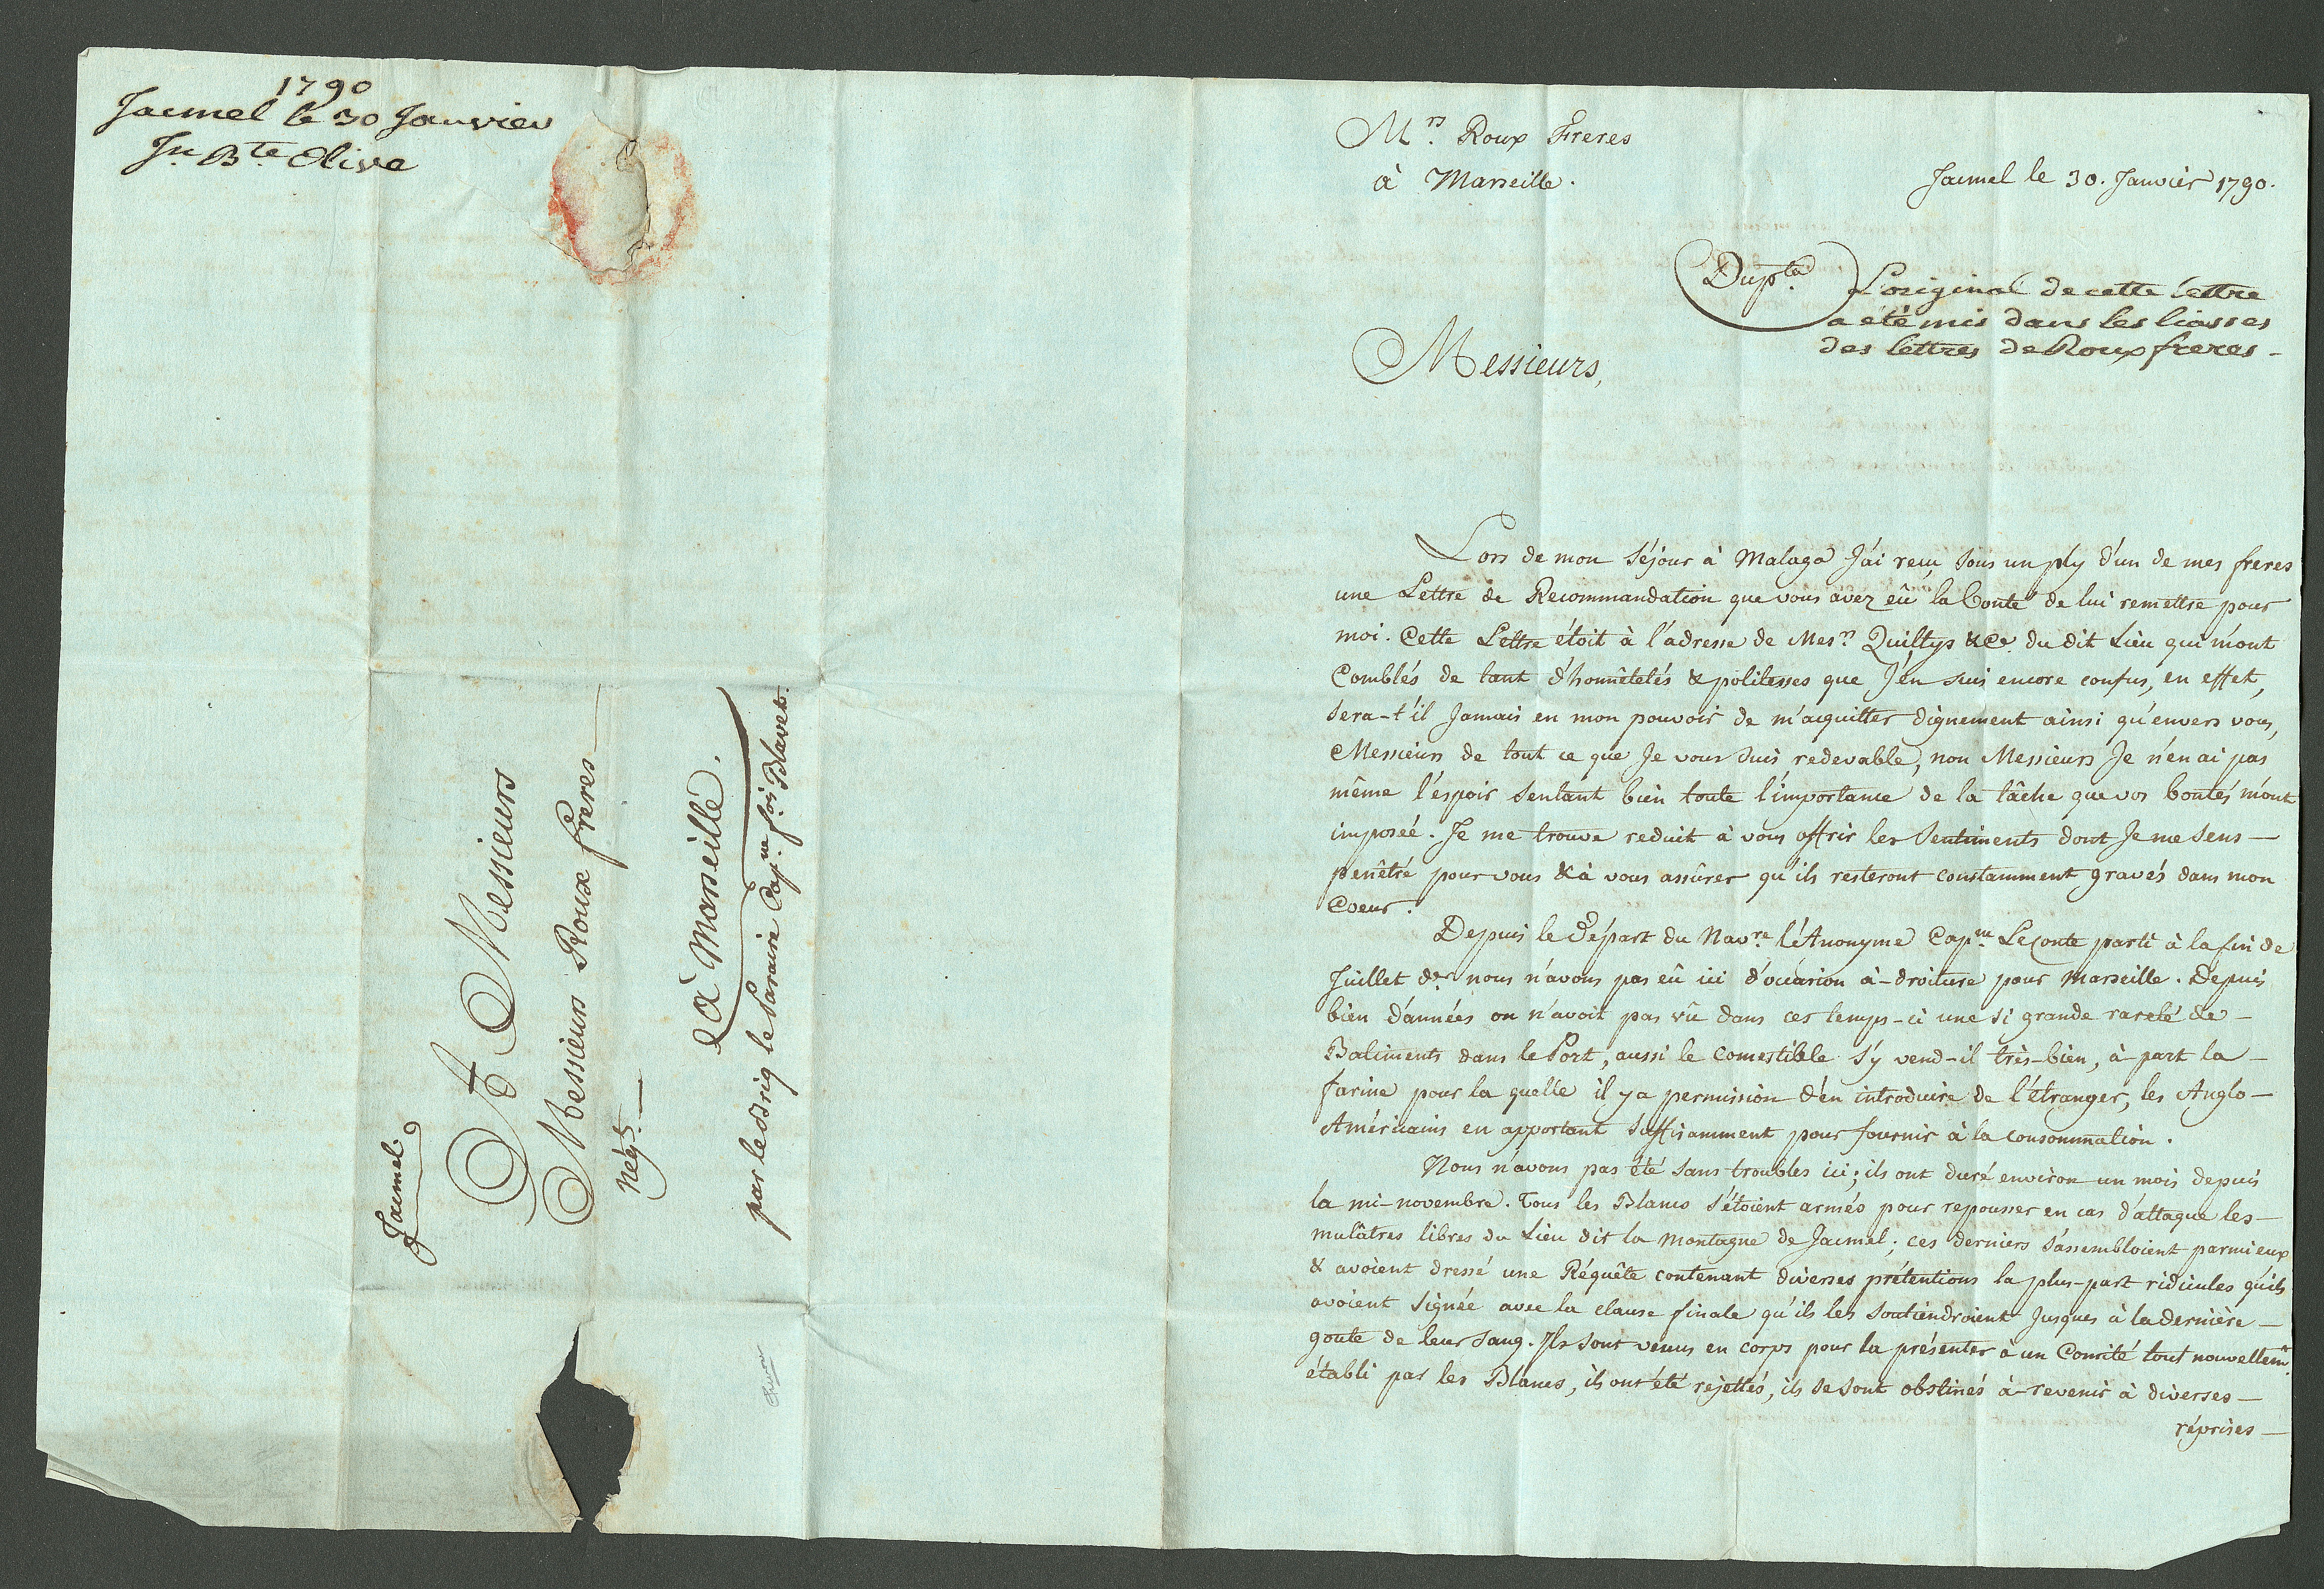 1790
Jacmel le 30 Janvier
Jn. Bte. Olive
Jacmel
A Messieurs
Messieurs Roux freres
Négts.
à Marseille.
par le Brig le Sanaire Capne. fois. Blavet.
Mrs. Roux Freres
à Marseille.
Jacmel le 30. Janvier 1790.
Dupta.
L'original de cette lettre
a été mis dans les liasses
des lettres de Roux freres -
Messieurs,
Lors de mon Séjour à Malaga J'ai reçu sous un ply d'un de mes freres
une Lettre de Recommandation que vous avez eû la bonté de lui remettre pour
moi. Cette Lettre étoit à l'adresse de Mesrs. Quiltys & Ce. du dit Lieu qui m'ont
Comblés de tant d'honnêtetés & politesses que J'en suis encore confus, en effet,
sera-t'il Jamais en mon pouvoir de m'acquitter dignement ainsi qu'envers vous,
Messieurs de tout ce que Je vous suis redevable, non Messieurs Je n'en ai pas
même l'espoir sentant bien toute l'importance de la tâche que vos bontés m'ont
imposée. Je me trouve reduit à vous offrir les Sentiments dont Je me sens —
penêtré pour vous & à vous assûrer qu'ils resteront constamment gravés dans mon
Coeur.
Depuis le Départ du Navre. l'Anonyme Capne. Leconte parti à la fin de
Juillet der. nous n'avons pas eû ici d'occasion à-droiture pour Marseille. Depuis
bien d'années on n'avoit pas vû dans ces temps-ci une si grande rareté de —
Batiments dans le Port, aussi le Comestible s'y vend-il très-bien, à part la —
farine pour la quelle il y a permission d'en introduire de l'étranger, les Anglo —
Américains en apportant suffisamment pour fournir à la consommation.
Nous n'avons pas été sans troubles ici; ils ont duré environ un mois depuis
la mi-novembre. Tous les Blancs s'étoient armés pour repousser en cas d'attaque les —
mulâtres libres du Lieu dit la Montagne de Jacmel; ces derniers s'assembloient parmi eux
& avoient dressé une Réquête contenant diverses prétentions la plus-part ridicules qu'ils
avoient signée avec la clause finale qu'ils les soutiendroient Jusques à la dernière —
goute de leur sang. Ils sont venus en corps pour la présenter à un Comité tout nouvellemt.
établi par les Blancs, ils ont été rejettés, ils se sont obstinés à-revenir à diverses —
réprises —